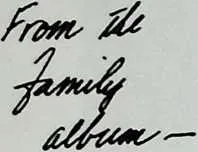 From the
family
album —